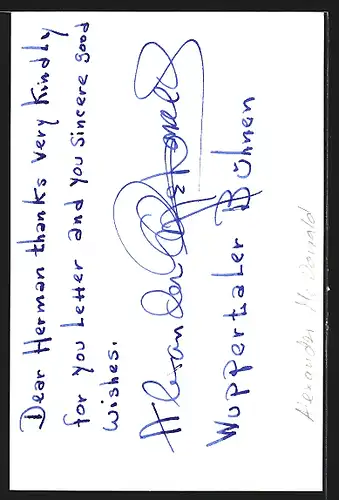 Dear Herman thanks very kindly
for you Letter and you sincere good
wishes.
Alexander
Wuppertaler Bühnen
Alexander McDonald